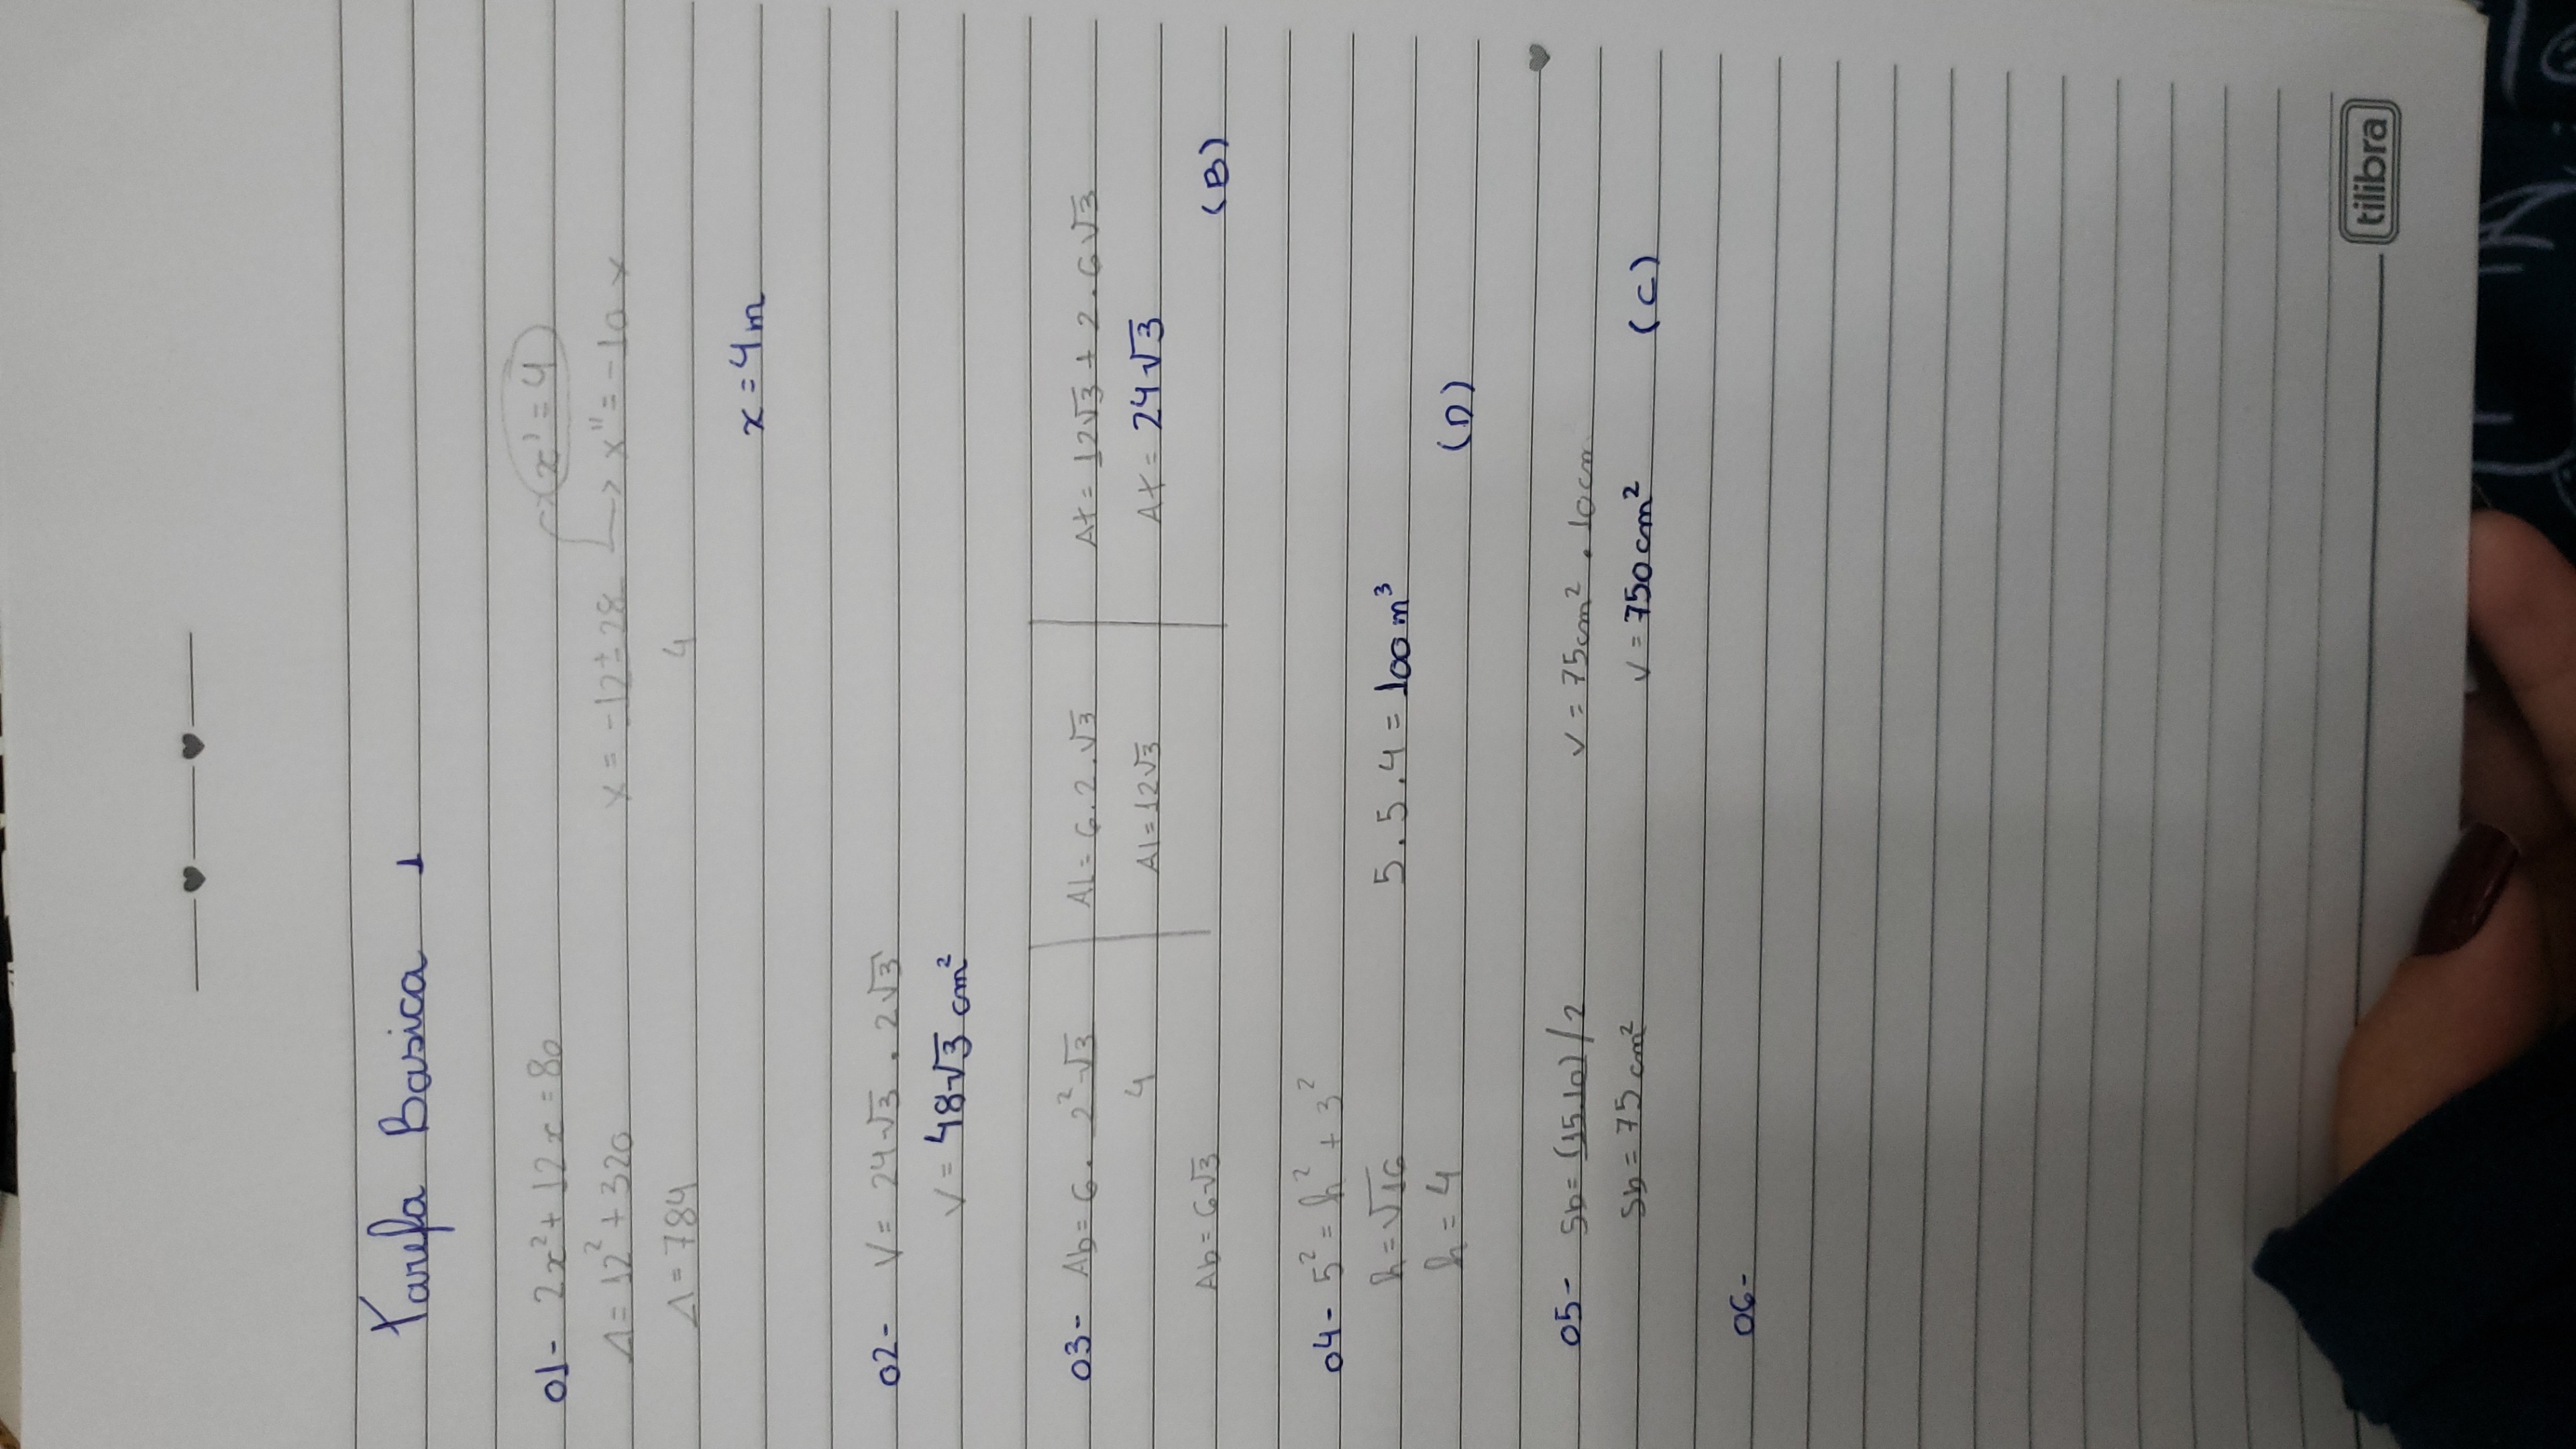 Tarefa Basica 1
01- 2x² + 12x = 80
x' = 4
Δ = 12² + 320
x = -12 ± 28
x" = -10 x
Δ = 784
4
x = 4m
02- V = 24√3 . 2√3
V = 48√3 cm²
03- Ab = 6 . 2²√3
4
Ab = 6√3
Al = 6.2.√3
Al = 12√3
At = 12√3 + 2.6√3
At = 24√3
(B)
04- 5² = h² + 3²
h = √16
h = 4
5.5.4 = 100 m³
(D)
05- Sb = (15.10)/2
Sb = 75 cm²
V = 75cm² . 10cm
V = 750 cm²
(C)
06-
tilibra